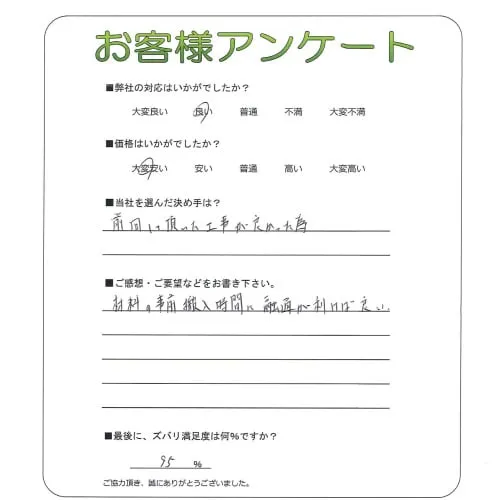 お客様アンケート
■弊社の対応はいかがでしたか?
大変良い 良い 普通 不満 大変不満
■価格はいかがでしたか?
大変安い 安い 普通 高い 大変高い
■当社を選んだ決め手は?
前回して頂いた工事が良かった為
■ご感想・ご要望などをお書き下さい。
材料の事前搬入時間に融通が利けば良い。
■最後に、ズバリ満足度は何%ですか?
95 %
ご協力頂き、誠にありがとうございました。